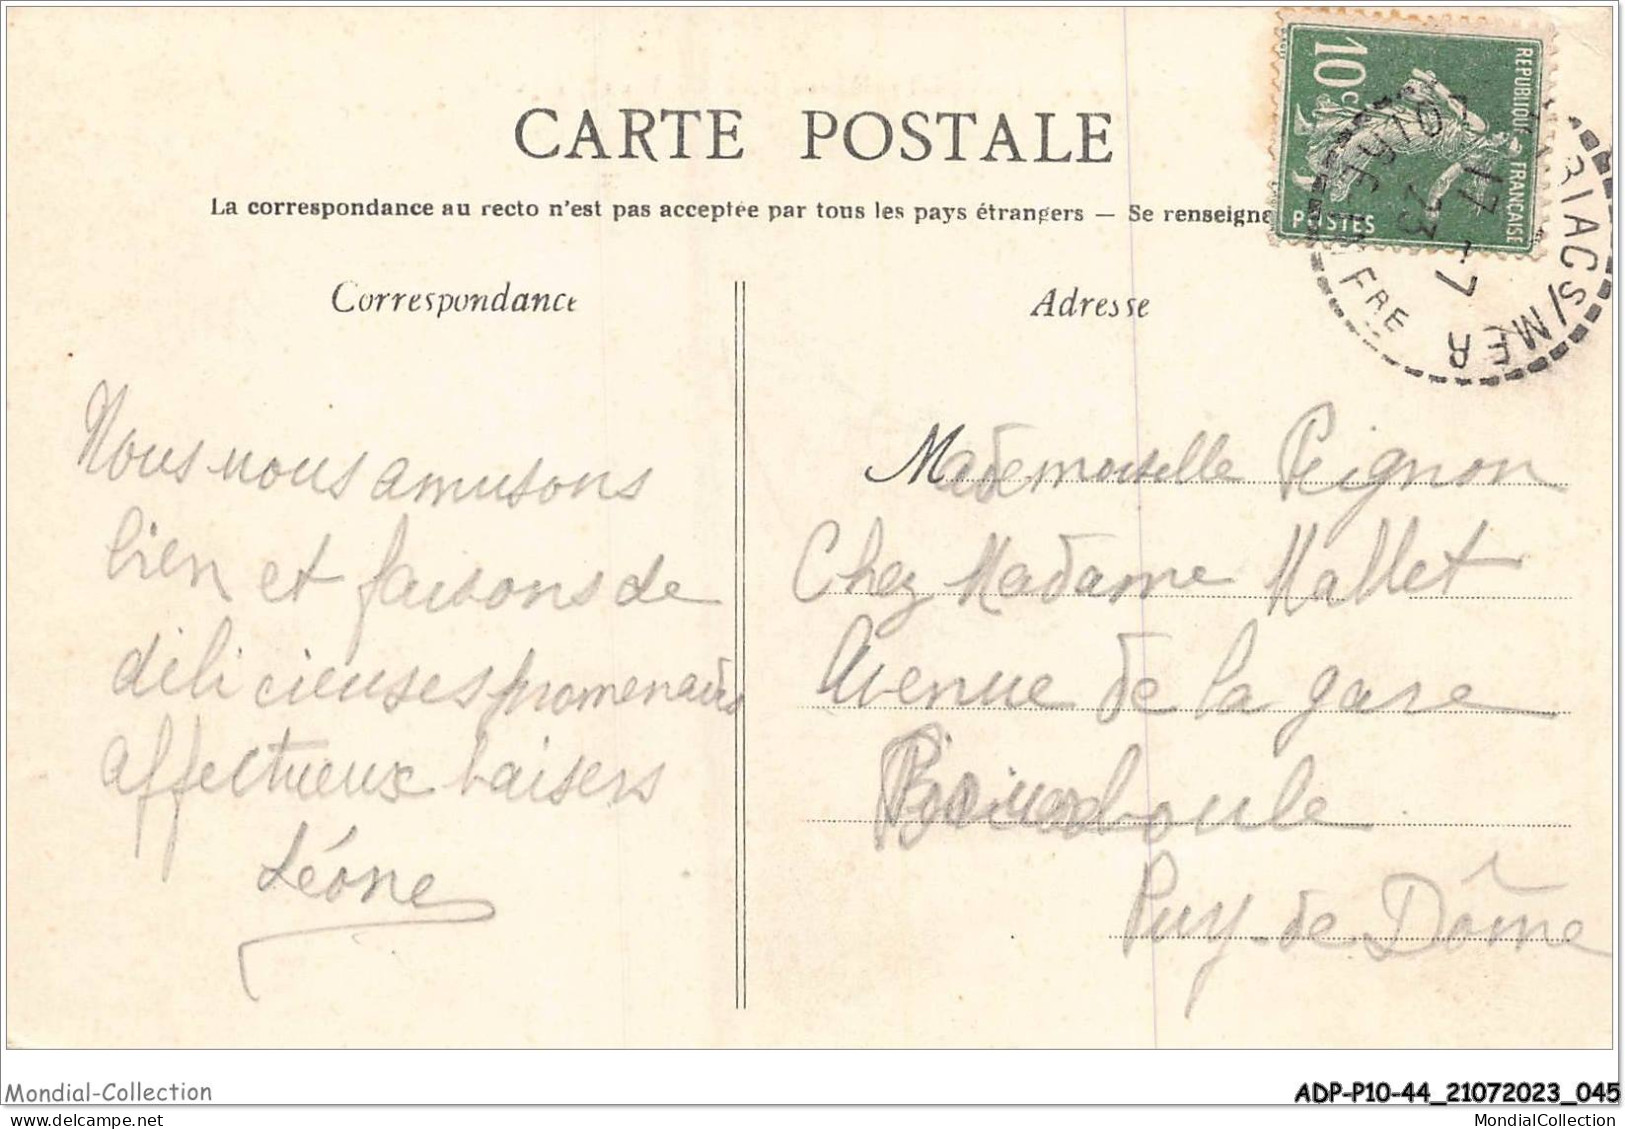 CARTE POSTALE
La correspondance au recto n'est pas acceptée par tous les pays étrangers — Se renseigne
Correspondance
Adresse
10 c
REPUBLIQUE FRANÇAISE
POSTES
17
7
23
RIAC S/MER
Nous nous amusons
bien et faisons de
délicieuses promenades
affectueux baisers
Léone
Mademoiselle Peignon
Chez Madame Mallet
Avenue de la gare
Puy-de Dôme
Mondial-Collection
ADP-P10-44_21072023_045
MondialCollection